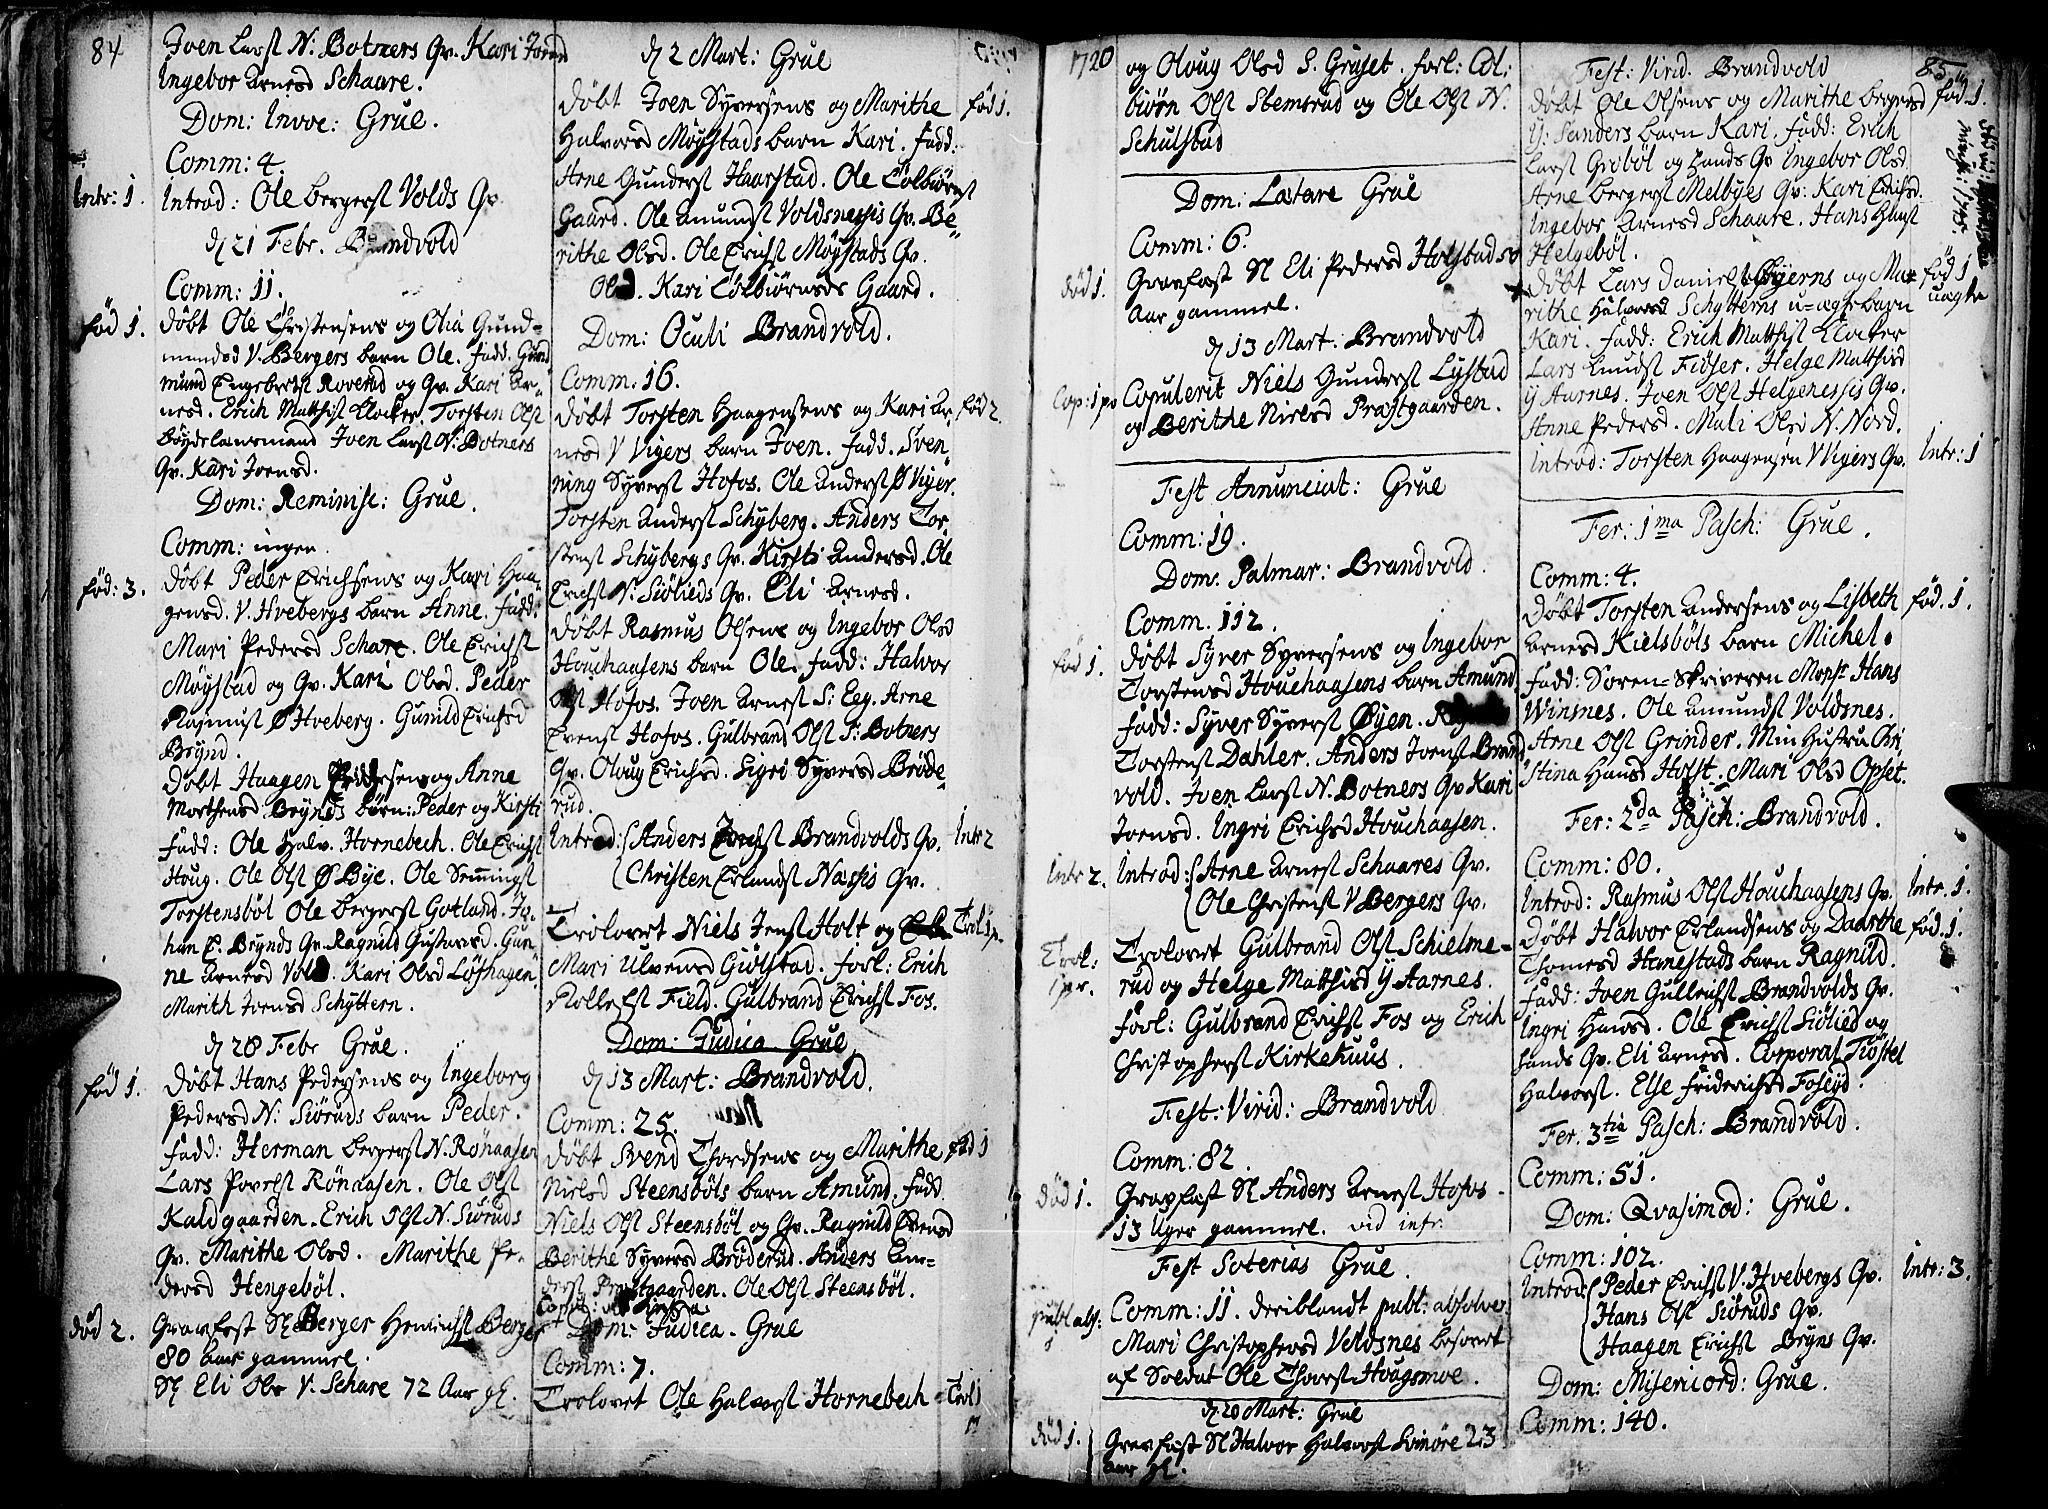 84
Joen Larst N: Botners Qv. Kari Joensd
Ingebor Arnesd Schaare.
Dom: Invoc: Grue.
Comm: 4.
Intr: 1. Introd: Ole Bergerst Volds Qv
d 21 Febr. Brandvold
Comm: 11.
fød 1. Døbt Ole Christensens og Olia Gund-
mundsd V. Bergers barn Ole. fadd. Gund
mund Engebretst Roverud og Qv. Kari Ar-
nesd. Erich Matthist Klocker. Torsten Olst
bøydelansmand Joen Larst N: Botners
Qv. Kari Joensd.
Dom: Reminisc: Grue.
Comm: ingen.
fød: 3. Døbt Peder Erichsens og Kari Haa-
gensd. V. Hvebergs barn Anne. fadd:
Mari Pedersd Schare. Ole Erichst
Møystad og Qv. Kari Olsd. Peder
Rasmust Ø Hveberg. Gunild Erichsd
Brynd.
Døbt Haagen Erichsens og Anne
Morthensd Brynds børn: Peder og Kirsti
fadd: Ole Halv. Hornebech. Ole Erichst
Houg. Ole Olst Ø Bye. Ole Semingst
Torstensbøl Ole Bergerst Gotland. Jo-
han E. Brynds Qv. Ragnild Gustavsd. Gun
ne Arnesd Vold. Kari Olsd Løfhagen.
Marith Joensd Schyttern.
d 28 Febr Grue.
fød 1. Døbt Hans Pedersens og Ingeborg
Pedersd N: Siøruds barn Peder.
fadd: Herman Bergerst N. Rønaasen
Lars Povelst Rønaasen. Ole Olst
Kaldgaarden. Erich Olst N. Siøruds
Qv. Marithe Olsd. Marithe Pe-
dersd Hengebøl.
død 2. Gravfest Sl Berger Henrichst Berger
80 Aar gammel.
Sl Eli Ols V. Schare 72 Aar gl.
d 2 Mart: Grue
Døbt Joen Syversens og Marithe fød 1.
Halvorsd Møystads barn Kari. fadd:
Arne Gunderst Haarstad. Ole Colbiørnst
Gaard. Ole Amundst Voldsnessis Qv. Be-
rithe Olsd. Ole Erichst Møystads Qv.
Olsd. Kari Colbiørnsds Gaard.
Dom: Oculi Brandvold.
Comm: 16.
Døbt Torsten Haagensens og Kari Ar- fød 2.
nesd V Vigers barn Joen. fadd. Sven-
ning Syverst Hofos. Ole Anderst Ø Viger.
Torsten Anderst Schyberg. Anders Tor-
stenst Schybergs Qv. Kirsti Andersd. Ole
Erichst N: Siølieds Qv. Eli Arnesd.
Døbt Rasmus Olsens og Ingebor Olsd
Houchaasens barn Ole. fadd: Halvor
Olst Hofos. Joen Arnest S: Eeg. Arne
Evenst Hofos. Gulbrand Olst S: Botners
Qv. Oloug Erichsd. Sigri Syversd Brøde-
rud.
Introd: Anders Erichst Brandvolds Qv. Intr 2
Christen Erlandst Nassis Qv.
Trolovet Niels Jenst Holt og Trol 1 p.
Mari Ulvensd Giølstad. forl: Erich
Rollefst Field. Gulbrand Erichst Fos.
Dom: Judica Grue
d 13 Mart: Brandvold.
Comm: 25.
Døbt Svend Thordsens og Marithe fød 1
Nielsd Steensbøls barn Amund. fadd
Niels Olst Steensbøl og Qv. Ragnild Evensd
Berithe Syversd Brøderud. Anders An-
derst Præstgaarden. Ole Olst Steensbøl.
Dom: Judica. Grue
Comm: 7.
Trolovet Ole Halvorst Hornebech Trol 1
1720
og Oloug Olsd S. Gruset. forl: Col:
biørn Olst Stemsrud og Ole Olst N.
Schulstad
Dom: Lætare Grue
Comm: 6.
død 1. Gravfæst Sl Eli Pedersd Holstad 50
Aar gammel.
d 13 Mart: Brandvold
Cop: 1 pr Copulerit Niels Gunderst Lystad
og Berithe Nielsd Præstgaarden.
Fest Annunciat: Grue
Comm: 19.
Dom: Palmar: Brandvold.
Comm. 112.
fød 1. Døbt Syver Syversens og Ingebor
Torstensd Houchaasens barn Amund
fadd: Syver Syverst Øyen.
Torstenst Dahler. Anders Joenst Brand
vold. Joen Larst N. Botners Qv Kari
Joensd. Ingri Erichsd Houchaasen.
Intr 2. Introd: Arne Arnest Schaares Qv.
Ole Christenst V Bergers Qv.
Trol: 1 pr. Trolovet Gulbrand Olst Schielme-
rud og Helge Matthisd Y Aarnes.
forl: Gulbrand Erichst Fos og Erich
Christopherst Kirkehuus.
Fest: Virid: Brandvold
Comm: 82.
død 1. Gravfæst Sl Anders Arnest Hofos
13 Uger gammel. vid infr:
Fest Soterias Grue.
publ abs: 1 Comm: 11. deriblandt publ: absolver
Mari Christophersd Voldsnes besovet
af Soldat Ole Thorst Hougsmoe.
d 20 Mart: Grue
død 1. Gravfæst Sl Halvor Halvorst Svinøre 23
Aar gl.
85
Fest: Virid. Brandvold
Døbt Ole Olsens og Marithe Bergersd fød. 1.
Y: Sanders barn Kari. fadd: Erich
Larst Grøbøl og hands Qv Ingebor Olsd.
Arne Bergerst Melbyes Qv: Kari Erichsd.
Ingebor Arnesd Schaare. Hans Hanst
Helgebøl.
Døbt Lars Danielst Byerns og Ma- fød 1
rithe Halvorsd Schytterns u-ægte barn uægte
Kari. fadd: Erich Matthist Klocker
Lars Knudst Fidser. Helge Matthisd
Y Aarnes. Joen Olst Helgenessis Qv.
Anne Pedersd. Mali Olsd N. Nord.
Introd: Torsten Haagensen V Vigers Qv. Intr: 1
Fer: 1ma Pasch: Grue.
Comm: 4.
Døbt Torsten Andersens og Lisbeth fød. 1.
Arnesd Kielsbøls barn Michel.
fadd: Soren-Skriveren Monsr Hans
Winsnes. Ole Amundst Voldsnes.
Arne Olst Grinder. Min Hustru Chri-
stina Hansd Holst. Mari Olsd Opset.
Fer: 2da Pasch: Brandvold.
Comm: 80.
Introd: Rasmus Olst Houchaasens Qv. Intr. 1.
Døbt Halvor Erlandsens og Daarthe fød. 1.
Thomesd Hanestads barn Ragnild.
fadd: Joen Gullichst Brandvolds Qv.
Ingri Hansd. Ole Erichst Siølied og
hands Qv. Eli Arnesd. Corporal Tiøstel
Halvorst. Else Friderichsd Foseyd.
Fer. 3tia Pasch: Brandvold.
Comm: 51.
Dom: Qvasimod: Grue.
Comm: 102.
Introd: Peder Erichst V. Hvebergs Qv. Intr: 3.
Hans Olst Siøruds Qv.
Haagen Erichst Bryns Qv.
Dom: Misericord: Grue.
Comm: 140.